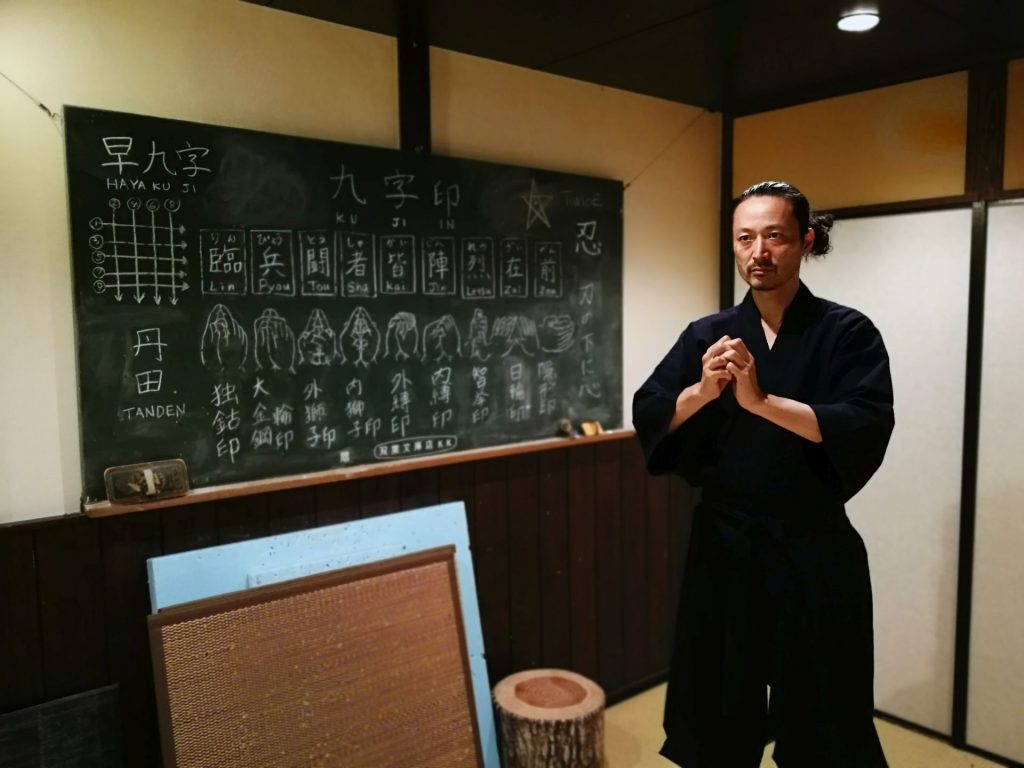 早九字
HAYA KU JI
2 4 6 8
1
3
5
7
9
丹
田
TANDEN
九 字 印
KU JI IN
りん ぴょう とう しゃ かい じん れつ ざい ぜん
臨 兵 闘 者 皆 陣 烈 在 前
Lin Pyou Tou Sha Kai Jin Letsu Zai Zen
独鈷印
大金剛輪印
外獅子印
内獅子印
外縛印
内縛印
智拳印
日輪印
隠形印
忍 刃の下に心